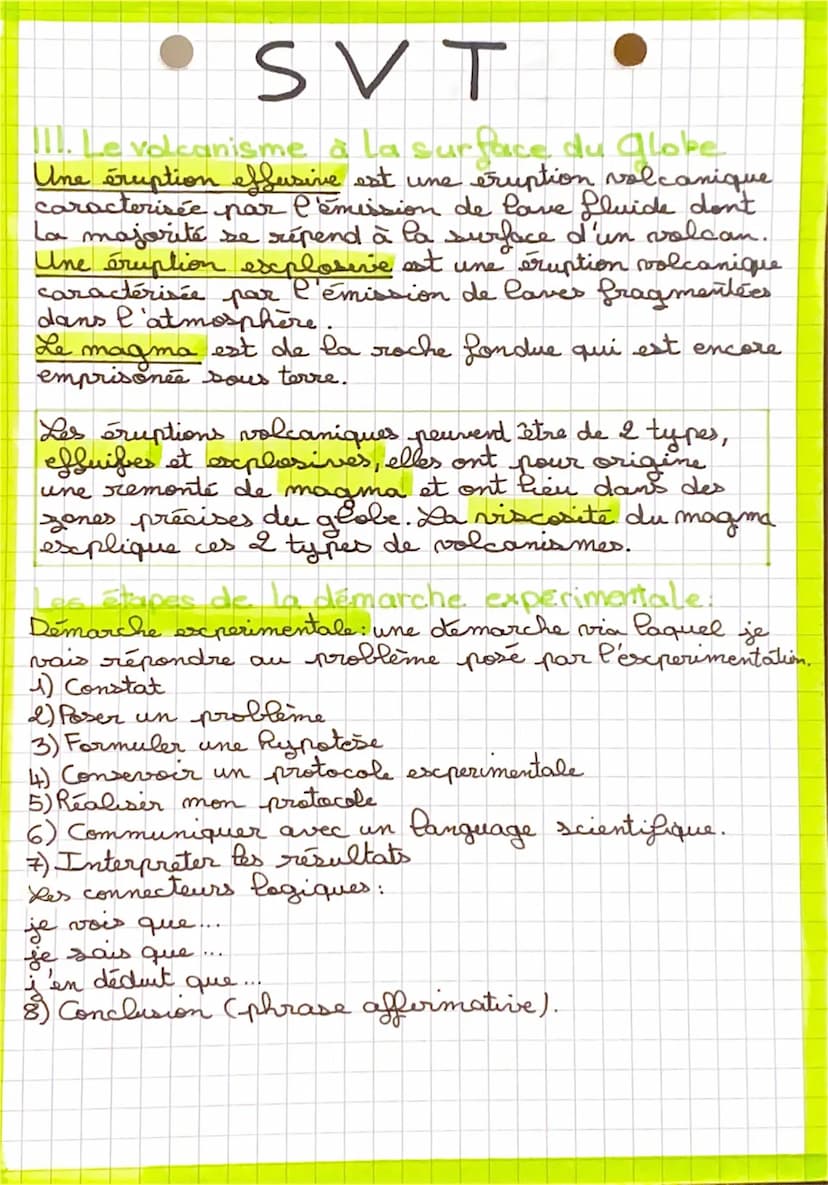 SVT
III. Le volcanisme à la surface du Globe
Une éruption effusive est une éruption volcanique
caracterisée par l'émission de lave fluide dont
La majorité se répend à la surface d'un volcan.
Une éruption explosive est une éruption volcanique
caractérisée par l'émission de laves fragmentées
dans l'atmosphère.
Le magma est de la roche fondue qui est encore
emprisonée sous terre.
Les éruptions volcaniques peuvend être de 2 types,
effuifes et explosives, elles ont pour origine
une remonté de magma et ont lieu dans des
zones précises du globe. La viscosité du magma
explique ces 2 types de volcanismes.
Les étapes de la démarche expérimentale:
Démarche experimentale: une démarche via laquel je
vais répondre au problème posé par l'experimentation.
1) Constat
2) Poser un problème
3) Formuler une hypotese
4) Consevoir un protocole experimentale
5) Réaliser mon protocole
6) Communiquer avec un language scientifique.
7) Interpréter les résultats
Les connecteurs logiques:
je vois que...
je sais que...
j'en déduit que...
8) Conclusion (phrase affirmative).